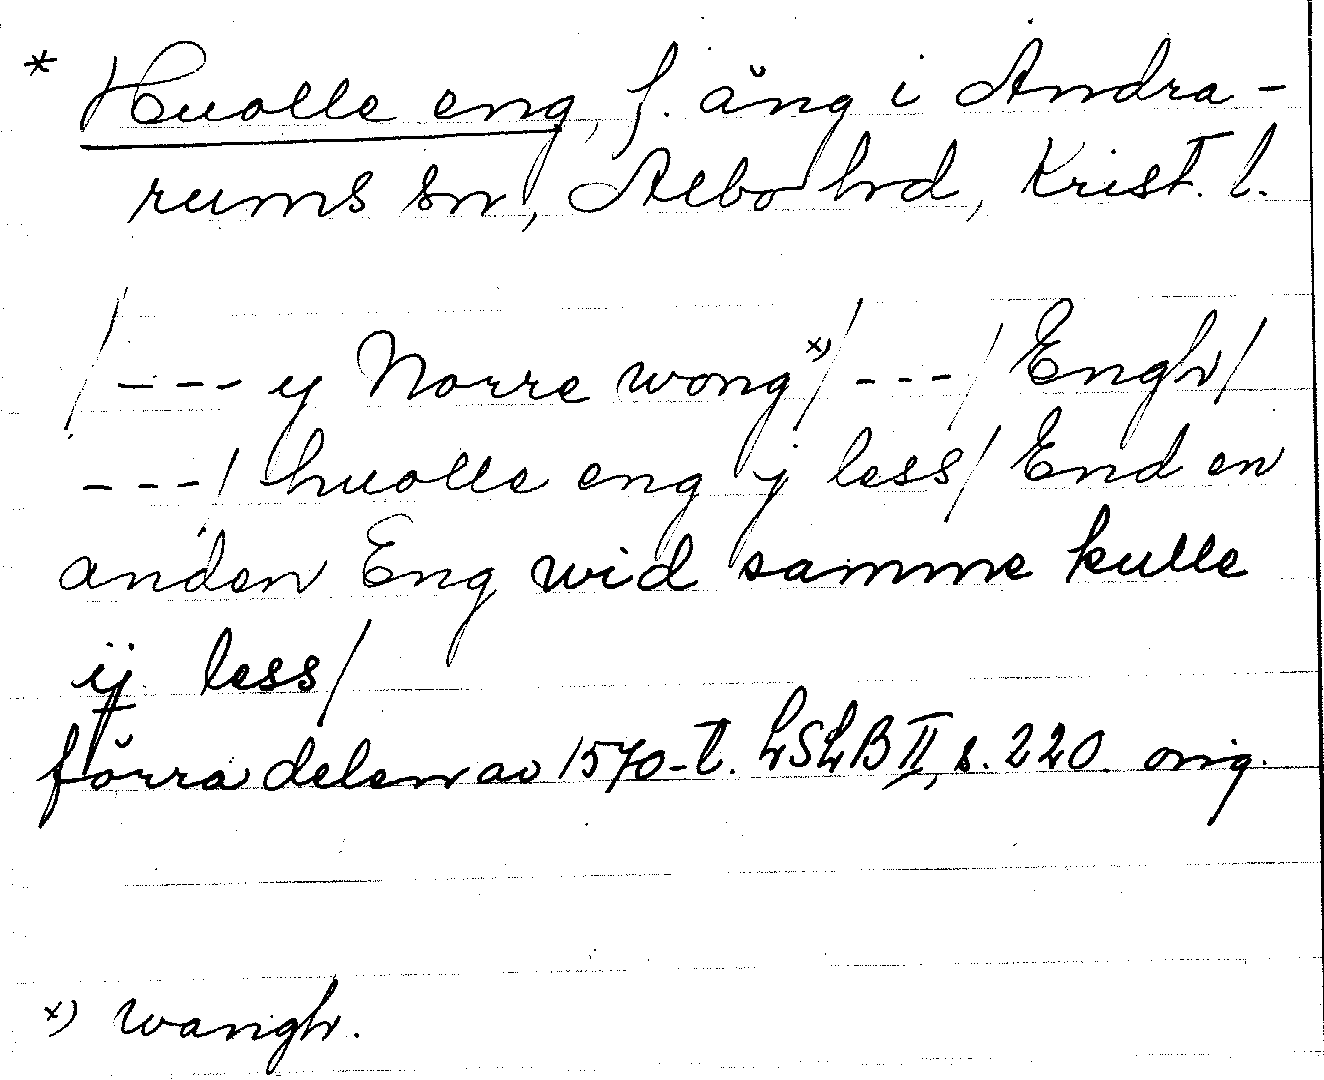 * Huolle eng, f. äng i Andra-
rums sn, Albo hd, Krist. l.
/---y Norre wong x)/---/Engh/
---/huolle eng j less/End en
anden Eng wid samme kulle
ij less/
förra delen av 1570-t. LSLB II, s. 220. orig.
x) wangh.